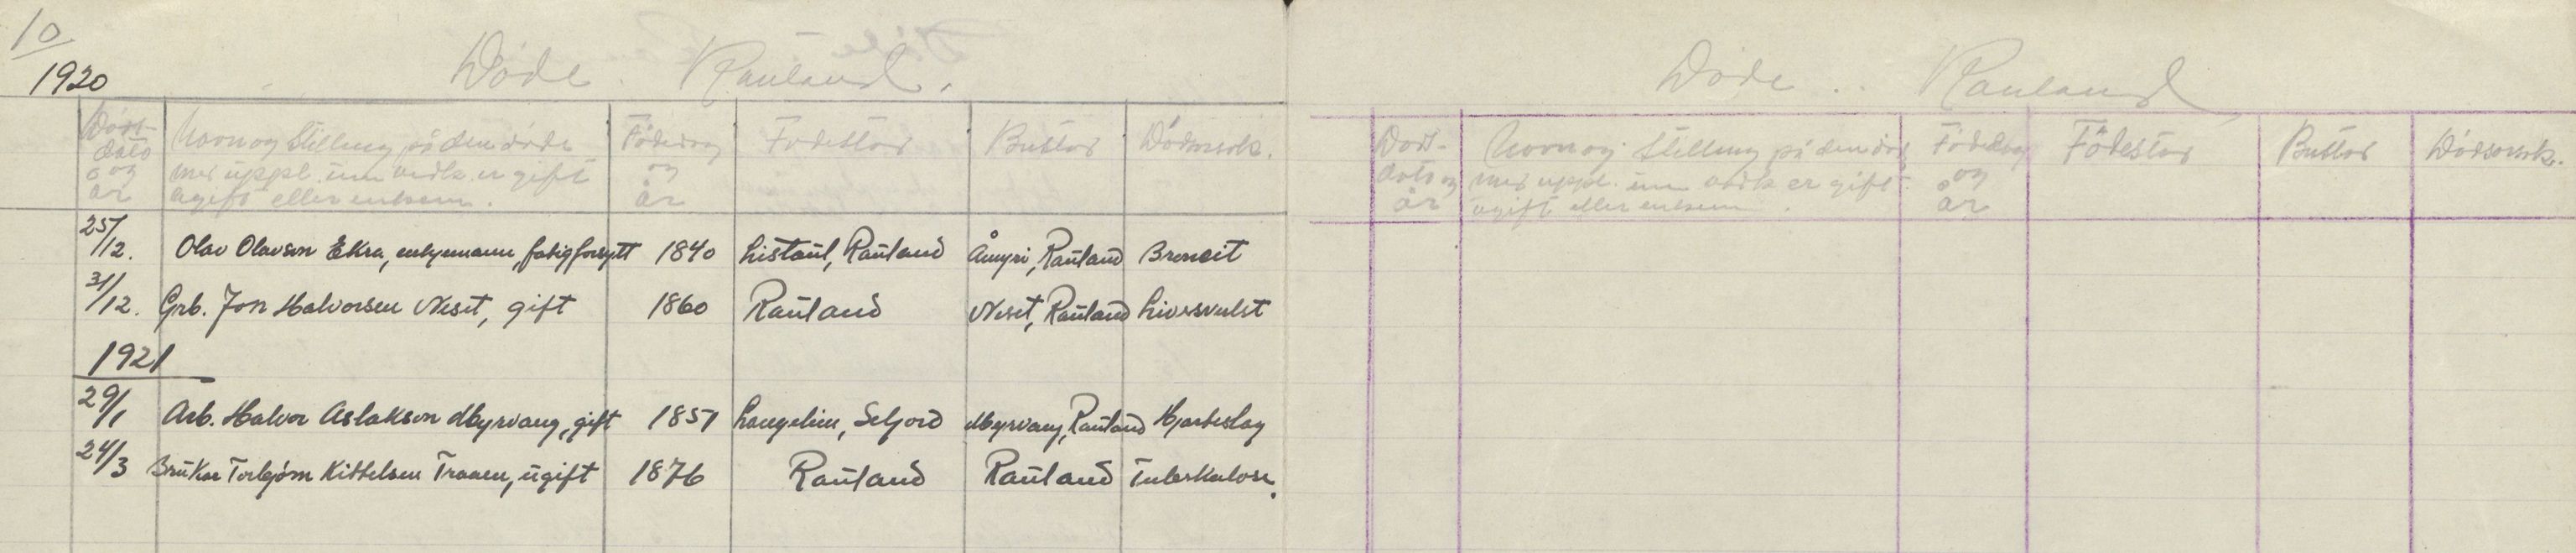 10
1920
Døde. Rauland.
Døds-
dato
og
år
Navn og stilling på den døde
med uppl. um vedk. er gift
ugift eller enkem.
Fødedag
og
år
Fødestad
Bustad
Dødsorsak.
25/12. Olav Olavson Ekra, enkjemann, fatigforsytt 1840 Listaul, Rauland Åmyri, Rauland Broncit
31/12. Grb. Jon Halvorsen Neset, gift 1860 Rauland Neset, Rauland Liversvulst
1921
29/1 Arb. Halvor Aslakson Myrvang, gift 1851 Langelim, Seljord Myrvang, Rauland Hjarteslag
24/3 Brukar Torbjørn Kittelsen Traaen, ugift 1876 Rauland Rauland Tuberkulose.
Døde.. Rauland
Døds-
dato og
år
Navn og stilling på den døde
med uppl. um vedk er gift
ugift eller enkem.
Fødedag
og
år
Fødestad
Bustad
Dødsorsak.